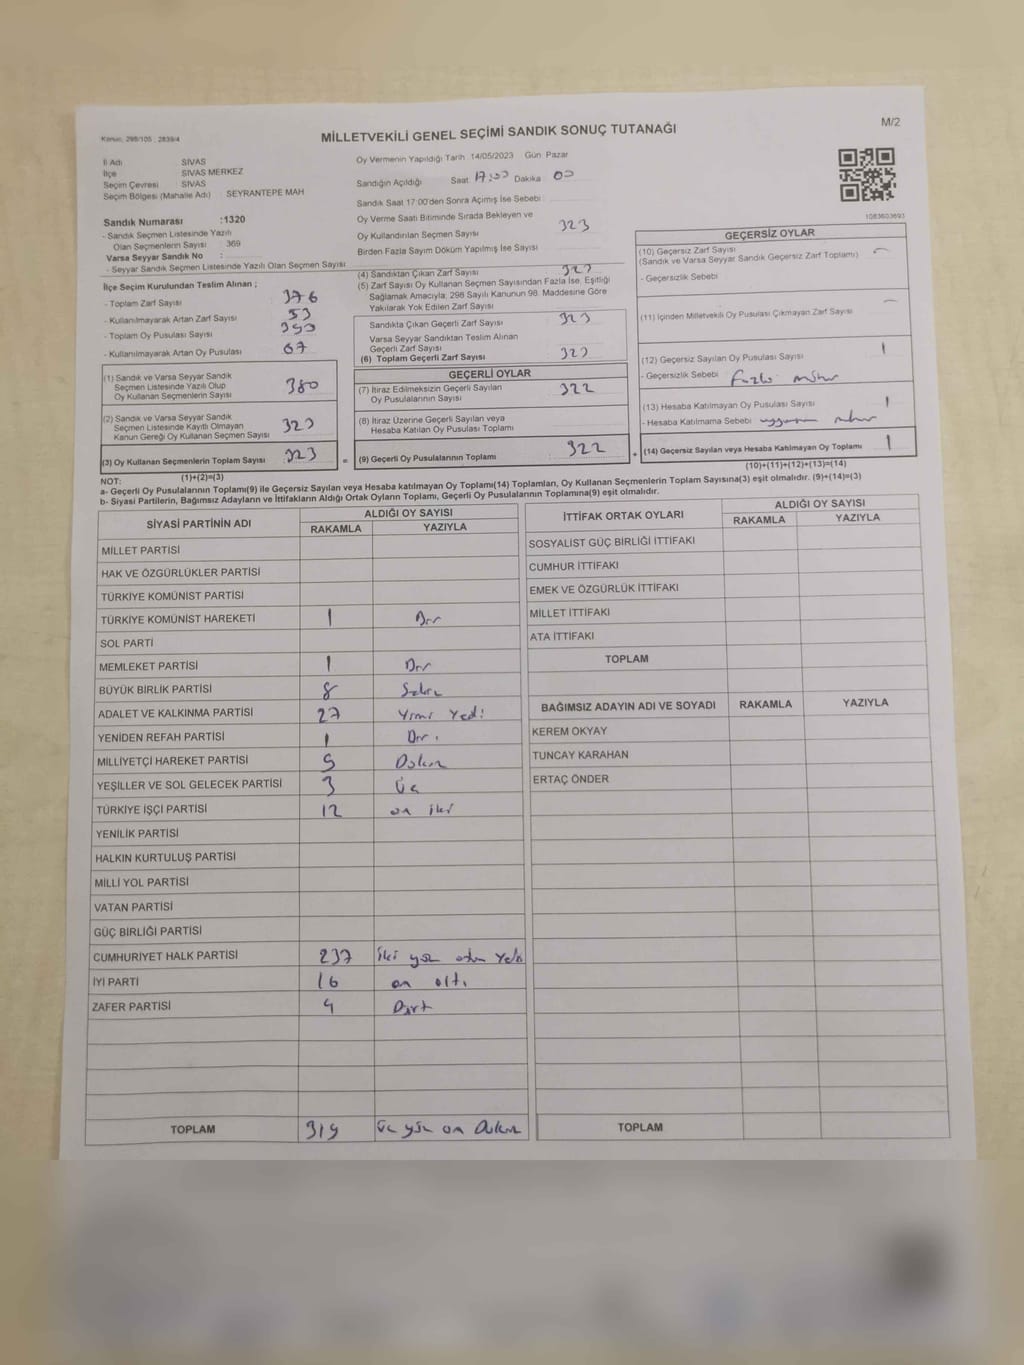 Kanun; 298/105 ; 2839/4
M/2
MİLLETVEKİLİ GENEL SEÇİMİ SANDIK SONUÇ TUTANAĞI
İl Adı SİVAS
İlçe SİVAS MERKEZ
Seçim Çevresi SİVAS
Seçim Bölgesi (Mahalle Adı) SEYRANTEPE MAH
Sandık Numarası :1320
- Sandık Seçmen Listesinde Yazılı
Olan Seçmenlerin Sayısı : 369
Varsa Seyyar Sandık No :
- Seyyar Sandık Seçmen Listesinde Yazılı Olan Seçmen Sayısı
İlçe Seçim Kurulundan Teslim Alınan ;
- Toplam Zarf Sayısı 376
- Kullanılmayarak Artan Zarf Sayısı 53
- Toplam Oy Pusulası Sayısı 390
- Kullanılmayarak Artan Oy Pusulası 67
(1) Sandık ve Varsa Seyyar Sandık
Seçmen Listesinde Yazılı Olup
Oy Kullanan Seçmenlerin Sayısı 380
(2) Sandık ve Varsa Seyyar Sandık
Seçmen Listesinde Kayıtlı Olmayan
Kanun Gereği Oy Kullanan Seçmen Sayısı 323
(3) Oy Kullanan Seçmenlerin Toplam Sayısı 323
(1)+(2)=(3)
Oy Vermenin Yapıldığı Tarih 14/05/2023 Gün Pazar
Sandığın Açıldığı Saat 17:00 Dakika 00
Sandık Saat 17:00'den Sonra Açımış İse Sebebi
Oy Verme Saati Bitiminde Sırada Bekleyen ve
Oy Kullandırılan Seçmen Sayısı 323
Birden Fazla Sayım Döküm Yapılmış İse Sayısı
(4) Sandıktan Çıkan Zarf Sayısı 323
(5) Zarf Sayısı Oy Kullanan Seçmen Sayısından Fazla İse, Eşitliği
Sağlamak Amacıyla; 298 Sayılı Kanunun 98. Maddesine Göre
Yakılarak Yok Edilen Zarf Sayısı
Sandıkta Çıkan Geçerli Zarf Sayısı 323
Varsa Seyyar Sandıktan Teslim Alınan
Geçerli Zarf Sayısı
(6) Toplam Geçerli Zarf Sayısı 323
GEÇERLİ OYLAR
(7) İtiraz Edilmeksizin Geçerli Sayılan
Oy Pusulalarının Sayısı 322
(8) İtiraz Üzerine Geçerli Sayılan veya
Hesaba Katılan Oy Pusulası Toplamı
= (9) Geçerli Oy Pusulalarının Toplamı 322
1083603693
GEÇERSİZ OYLAR
(10) Geçersiz Zarf Sayısı
(Sandık ve Varsa Seyyar Sandık Geçersiz Zarf Toplamı) —
- Geçersizlik Sebebi
(11) İçinden Milletvekili Oy Pusulası Çıkmayan Zarf Sayısı —
(12) Geçersiz Sayılan Oy Pusulası Sayısı 1
- Geçersizlik Sebebi Fazla mühür
(13) Hesaba Katılmayan Oy Pusulası Sayısı 1
- Hesaba Katılmama Sebebi
+ (14) Geçersiz Sayılan veya Hesaba Katılmayan Oy Toplamı 1
(10)+(11)+(12)+(13)=(14)
NOT:
a- Geçerli Oy Pusulalarının Toplamı(9) ile Geçersiz Sayılan veya Hesaba katılmayan Oy Toplamı(14) Toplamları, Oy Kullanan Seçmenlerin Toplam Sayısına(3) eşit olmalıdır. (9)+(14)=(3)
b- Siyasi Partilerin, Bağımsız Adayların ve İttifakların Aldığı Ortak Oyların Toplamı, Geçerli Oy Pusulalarının Toplamına(9) eşit olmalıdır.
SİYASİ PARTİNİN ADI ALDIĞI OY SAYISI
RAKAMLA YAZIYLA
MİLLET PARTİSİ
HAK VE ÖZGÜRLÜKLER PARTİSİ
TÜRKİYE KOMÜNİST PARTİSİ
TÜRKİYE KOMÜNİST HAREKETİ 1 Bir
SOL PARTİ
MEMLEKET PARTİSİ 1 Bir
BÜYÜK BİRLİK PARTİSİ 8 Sekiz
ADALET VE KALKINMA PARTİSİ 27 Yirmi Yedi
YENİDEN REFAH PARTİSİ 1 Bir
MİLLİYETÇİ HAREKET PARTİSİ 9 Dokuz
YEŞİLLER VE SOL GELECEK PARTİSİ 3 üç
TÜRKİYE İŞÇİ PARTİSİ 12 on iki
YENİLİK PARTİSİ
HALKIN KURTULUŞ PARTİSİ
MİLLİ YOL PARTİSİ
VATAN PARTİSİ
GÜÇ BİRLİĞİ PARTİSİ
CUMHURİYET HALK PARTİSİ 237 iki yüz otuz Yedi
İYİ PARTİ 16 on altı
ZAFER PARTİSİ 4 Dört
TOPLAM 319 üç yüz on Dokuz
İTTİFAK ORTAK OYLARI ALDIĞI OY SAYISI
RAKAMLA YAZIYLA
SOSYALİST GÜÇ BİRLİĞİ İTTİFAKI
CUMHUR İTTİFAKI
EMEK VE ÖZGÜRLÜK İTTİFAKI
MİLLET İTTİFAKI
ATA İTTİFAKI
TOPLAM
BAĞIMSIZ ADAYIN ADI VE SOYADI RAKAMLA YAZIYLA
KEREM OKYAY
TUNCAY KARAHAN
ERTAÇ ÖNDER
TOPLAM